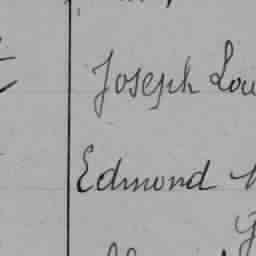 Joseph Lou
Edmond